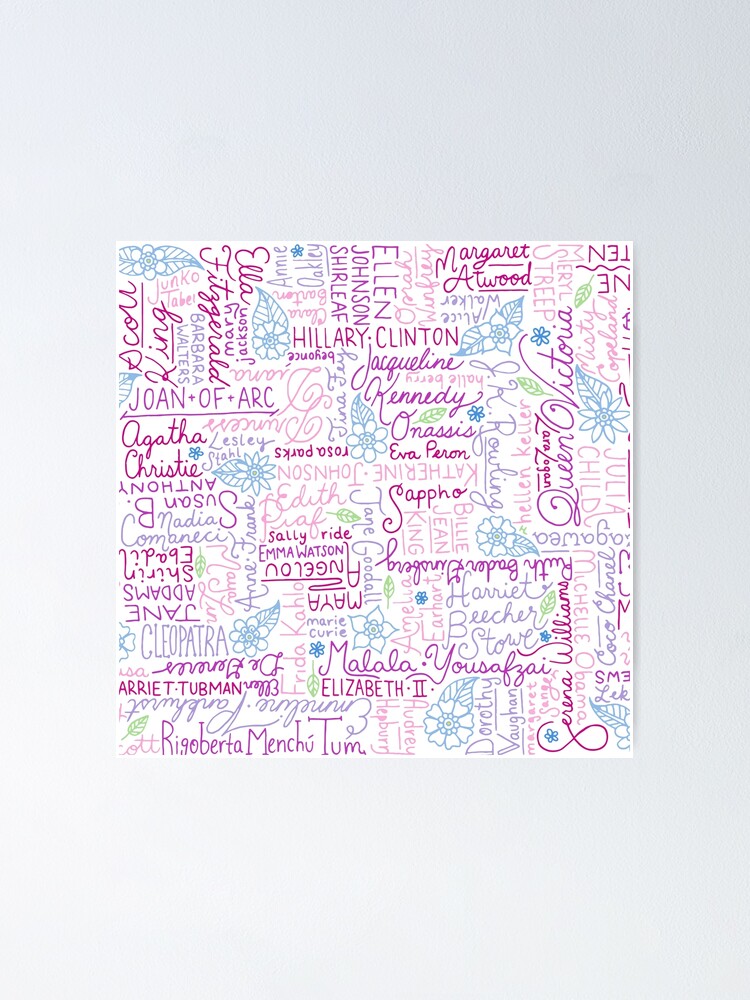 Junko
Tabei
Ella
Fitzgerald
Annie
Oakley
ELLEN
JOHNSON
SHIRLEAF
Winfrey
Margaret
Atwood
MERYL
STREEP
King
BARBARA
WALTERS
mary
jackson
Clara
Barton
Alice
Walker
Misty
Copeland
HILLARY CLINTON
beyonce
Tina Fey
Jacqueline
Kennedy
Onassis
halle berry
J.K. Rowling
Queen Victoria
JOAN OF ARC
Princess
Diana
Agatha
Christie
Lesley
Stahl
rosa parks
Eva Peron
KATHERINE JOHNSON
hellen keller
Zara Zogan
JULIA
CHILD
SUSAN B.
ANTHONY
Edith
Piaf
Sappho
BILLIE
JEAN
KING
Nadia
Comaneci
Anne Frank
sally ride
EMMA WATSON
Jane Goodall
Shirin
Ebadi
Maya Lin
MAYA
ANGELOU
Ruth Bader Ginsberg
JANE
ADDAMS
Amelia
Earhart
Harriet
Beecher
Stowe
MICHELLE Obama
Coco Chanel
CLEOPATRA
Frida Kahlo
marie
curie
Malala Yousafzai
Serena Williams
Ellen
DeGeneres
ARRIET TUBMAN
ELIZABETH II
Emmeline Pankhurst
Audrey
Hepburn
Dorothy
Vaughan
margaret
sanger
ott
Rigoberta Menchú Tum